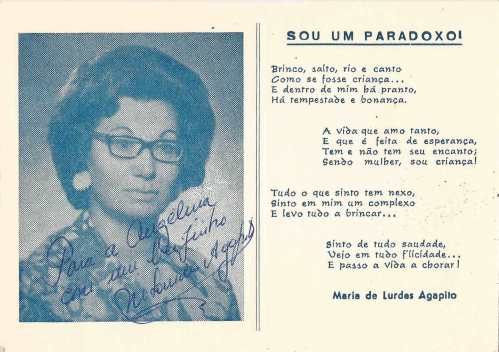 SOU UM PARADOXO!
Brinco, salto, rio e canto
Como se fosse criança...
E dentro de mim há pranto,
Há tempestade e bonança.
A vida que amo tanto,
E que é feita de esperança,
Tem e não tem seu encanto;
Sendo mulher, sou criança!
Tudo o que sinto tem nexo,
Sinto em mim um complexo
E levo tudo a brincar...
Sinto de tudo saudade,
Vejo em tudo f'licidade...
E passo a vida a chorar!
Maria de Lurdes Agapito
Para a Angelina
com um beijinho
Mª Lourdes Agapito